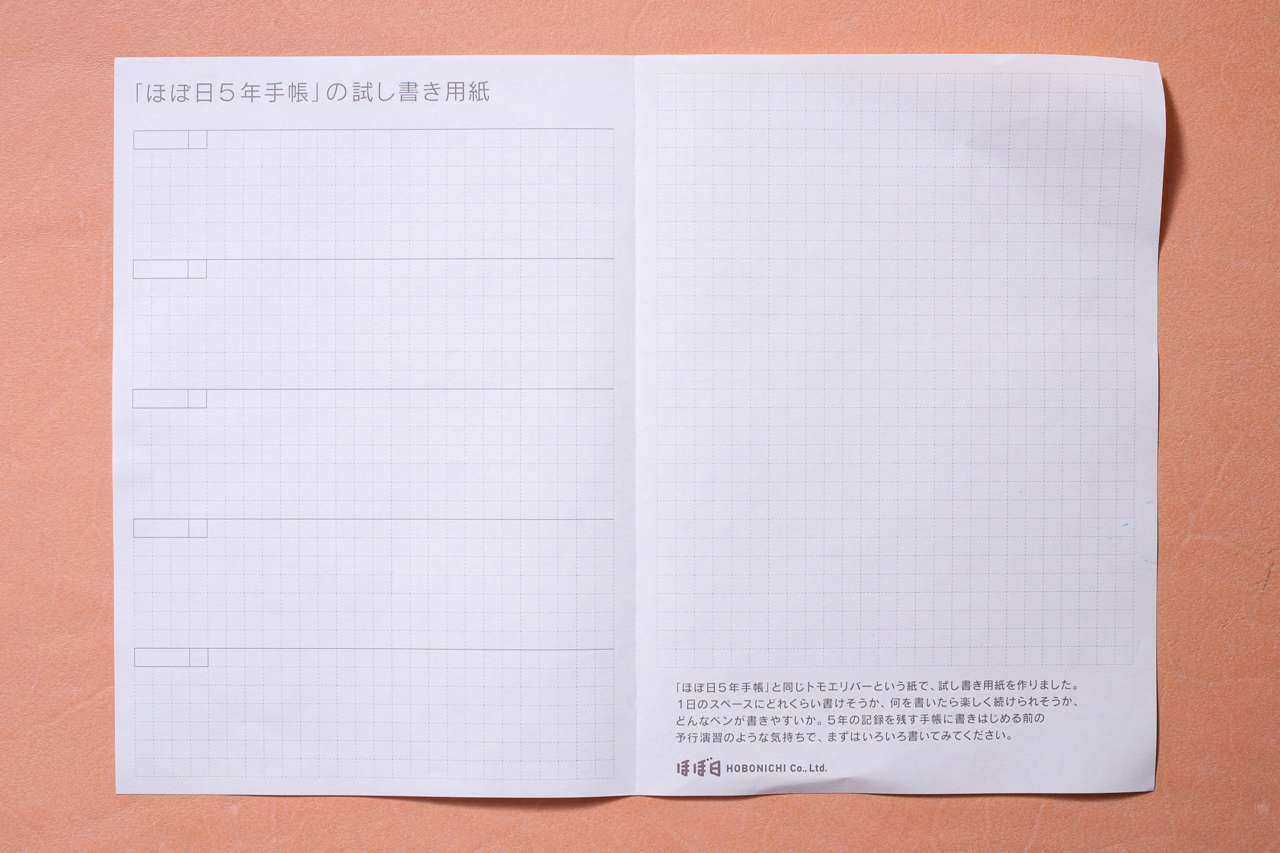 「ほぼ日5年手帳」の試し書き用紙
「ほぼ日5年手帳」と同じトモエリバーという紙で、試し書き用紙を作りました。
1日のスペースにどれくらい書けそうか、何を書いたら楽しく続けられそうか、
どんなペンが書きやすいか。5年の記録を残す手帳に書きはじめる前の
予行演習のような気持ちで、まずはいろいろ書いてみてください。
ほぼ日 HOBONICHI Co., Ltd.